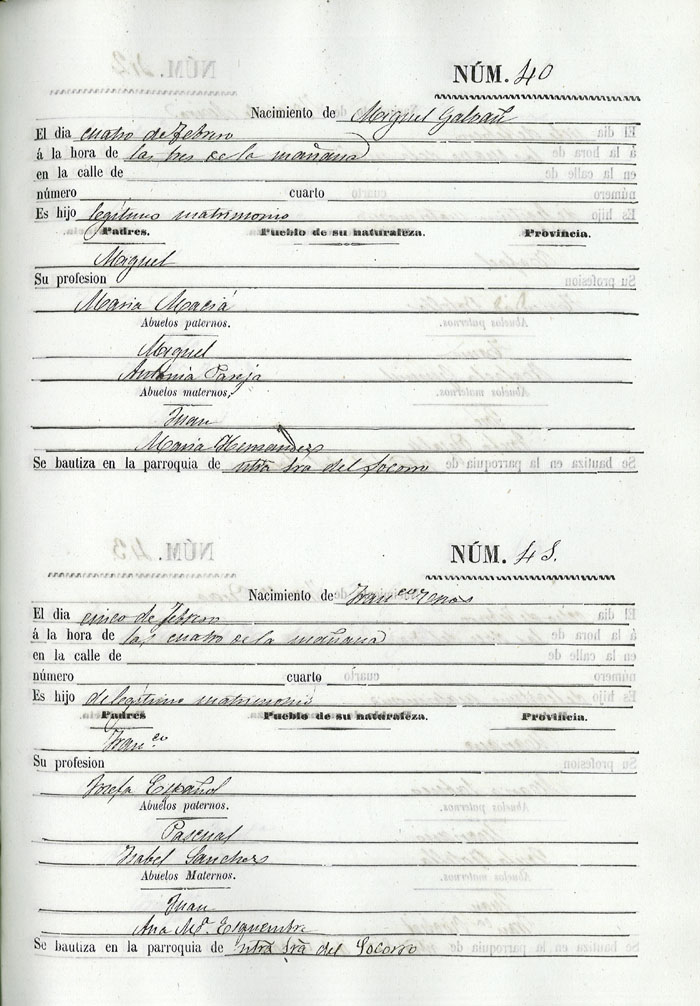 NÚM. 40
Nacimiento de Miguel Galvañ
El dia cuatro de Febrero
á la hora de las tres de la mañana
en la calle de
número cuarto
Es hijo legítimo matrimonio
Padres. Pueblo de su naturaleza. Provincia.
Miguel
Su profesion
Maria Maciá
Abuelos paternos.
Miguel
Antonia Pareja
Abuelos maternos,
Juan
Maria Hernandez
Se bautiza en la parroquia de ntra Sra del Socorro
NÚM. 4
Nacimiento de Franco
El dia cinco de Febrero
á la hora de las cuatro de la mañana
en la calle de
número cuarto
Es hijo de legítimo matrimonio
Padres Pueblo de su naturaleza. Provincia.
Franco
Su profesion
Josefa Español
Abuelos paternos.
Pascual
Isabel Sanchez
Abuelos Maternos.
Juan
Ana Mª. Esquembre
Se bautiza en la parroquia de ntra Sra del Socorro